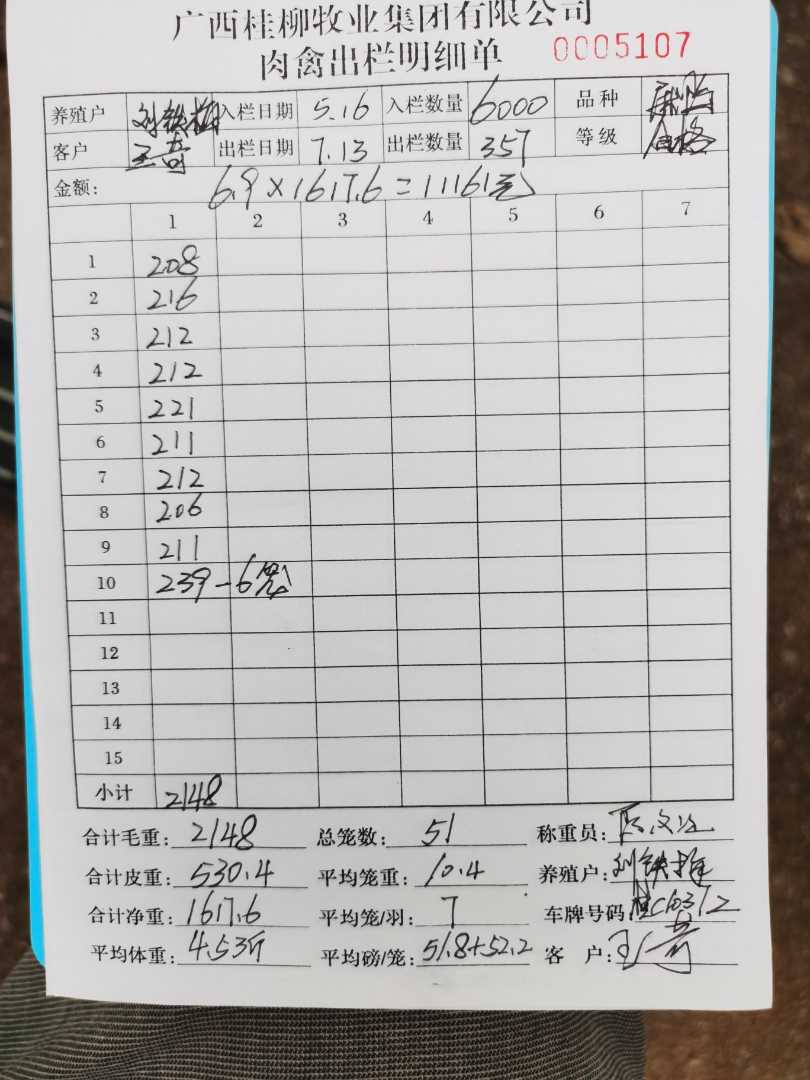 广西桂柳牧业集团有限公司
肉禽出栏明细单 0005107
养殖户 刘铁梅 入栏日期 5.16 入栏数量 6000 品种
客户 王奇 出栏日期 7.13 出栏数量 357 等级 合格
金额: 6.9×1617.6=11161元
1 2 3 4 5 6 7
1 208
2 216
3 212
4 212
5 221
6 211
7 212
8 206
9 211
10 239-6笼
11
12
13
14
15
小计 2148
合计毛重: 2148 总笼数: 51 称重员:
合计皮重: 530.4 平均笼重: 10.4 养殖户: 刘铁梅
合计净重: 1617.6 平均笼/羽: 7 车牌号码:
平均体重: 4.53斤 平均磅/笼: 51.8+52.2 客户: 王奇